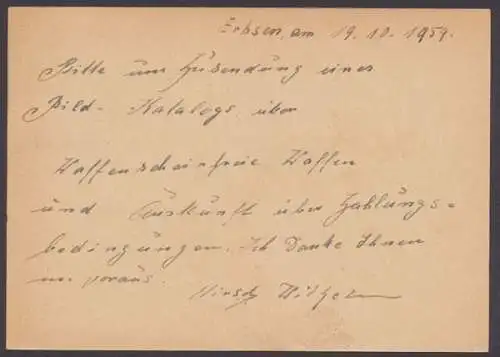 Erbsen, am 19.10.1959.
Bitte um Zusendung eines
Bild-Katalogs über
Waffenscheinfreie Waffen
und Auskunft über Zahlungs=
bedingungen. Ich Danke Ihnen
im voraus.
Hirsch